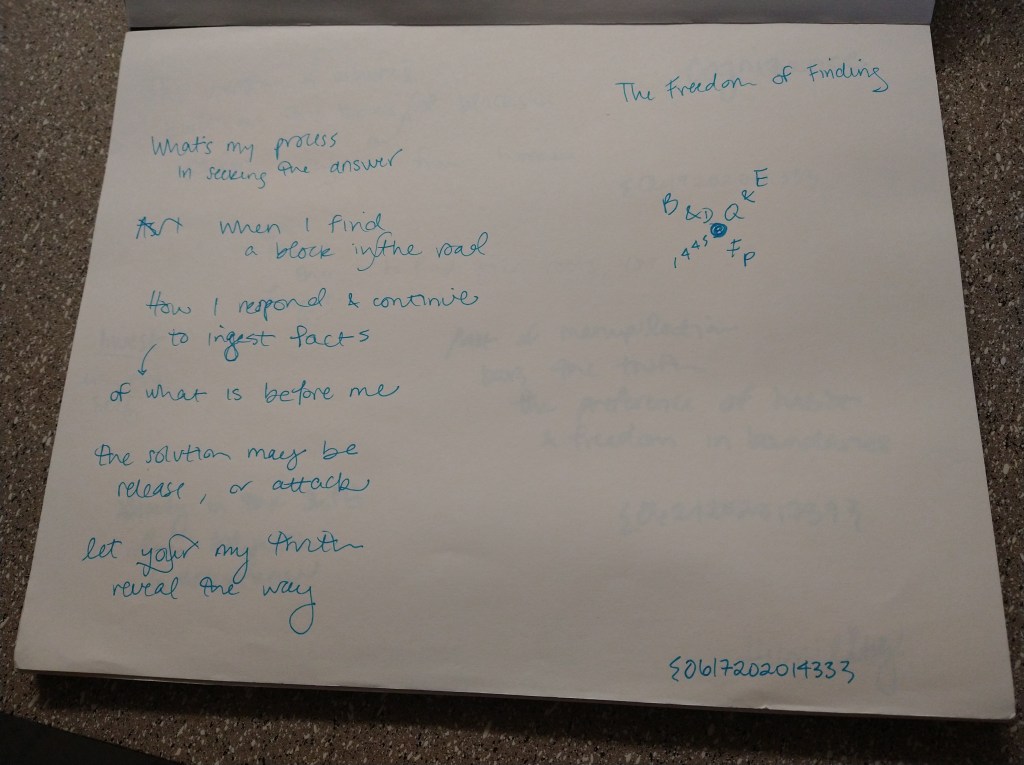 The Freedom of Finding
What's my process
in seeking the answer
when I find
a block in the road
How I respond & continue
to ingest facts
of what is before me
the solution may be
release, or attack
let your my truth
reveal the way
B & D Q & E
1445 F P
{061720201433}